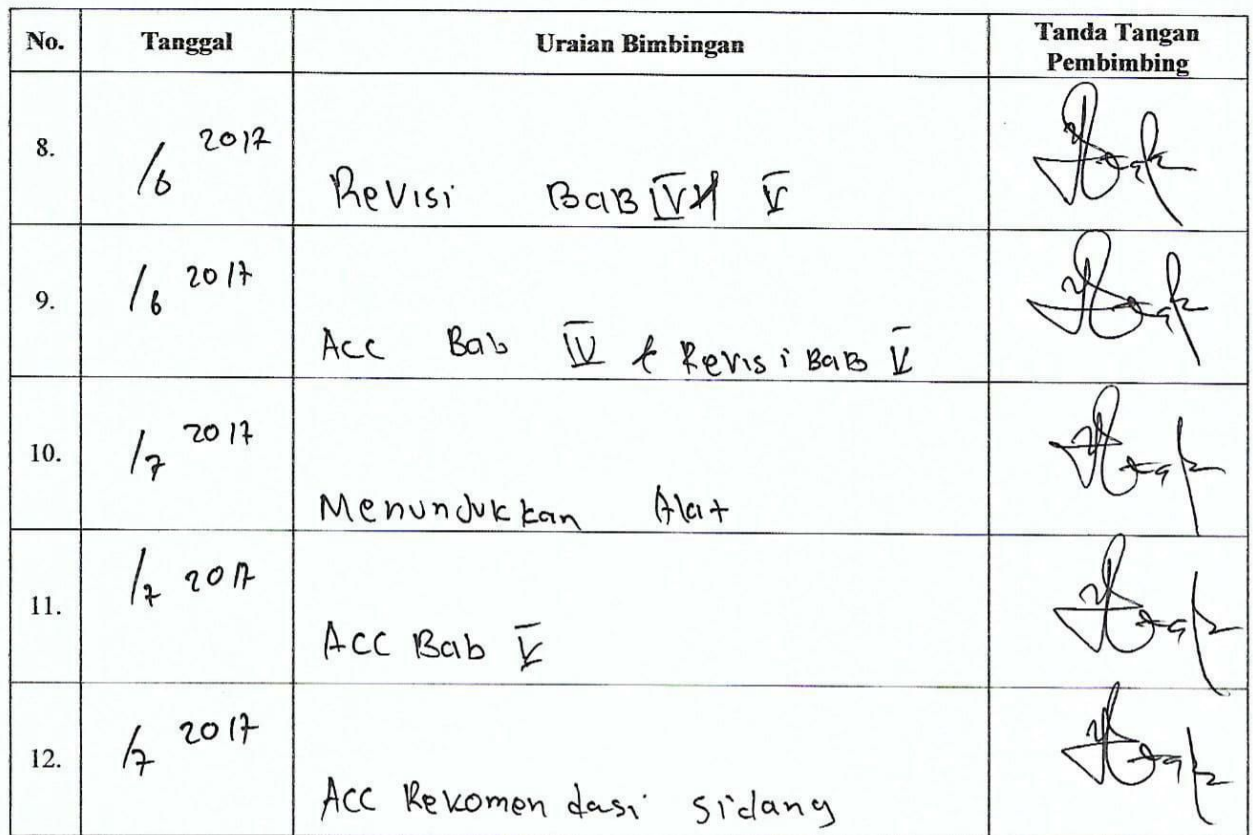 No. Tanggal Uraian Bimbingan Tanda Tangan Pembimbing
8. /6 2017 Revisi BaB IV & V
9. /6 2017 Acc Bab IV & Revisi BaB V
10. /7 2017 Menundukkan Alat
11. /7 2017 Acc Bab V
12. /7 2017 Acc Rekomendasi Sidang